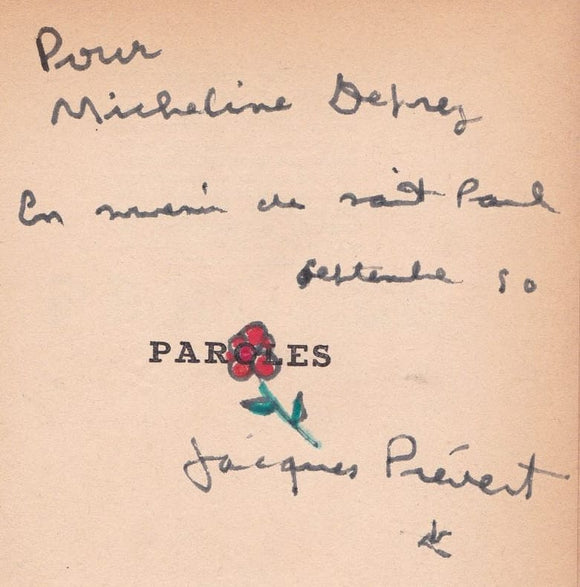 Pour
Micheline Deprez
En souvenir de saint Paul
septembre 50
PAROLES
Jacques Prévert